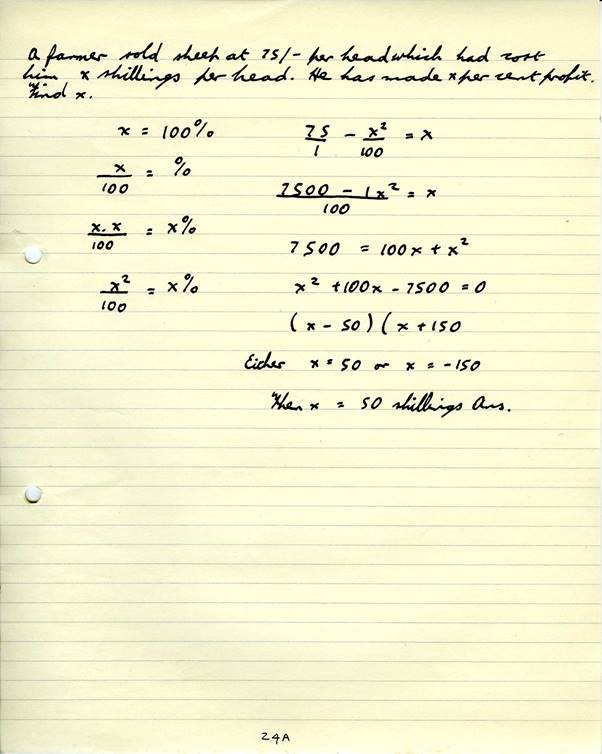 A farmer sold sheep at 75/- per head which had cost
him x shillings per head. He has made x per cent profit.
Find x.
x = 100%
x/100 = %
x.x/100 = x%
x²/100 = x%
75/1 - x²/100 = x
7500 - 1x²/100 = x
7500 = 100x + x²
x² + 100x - 7500 = 0
(x - 50) (x + 150
Either x = 50 or x = -150
Then x = 50 shillings Ans.
24A